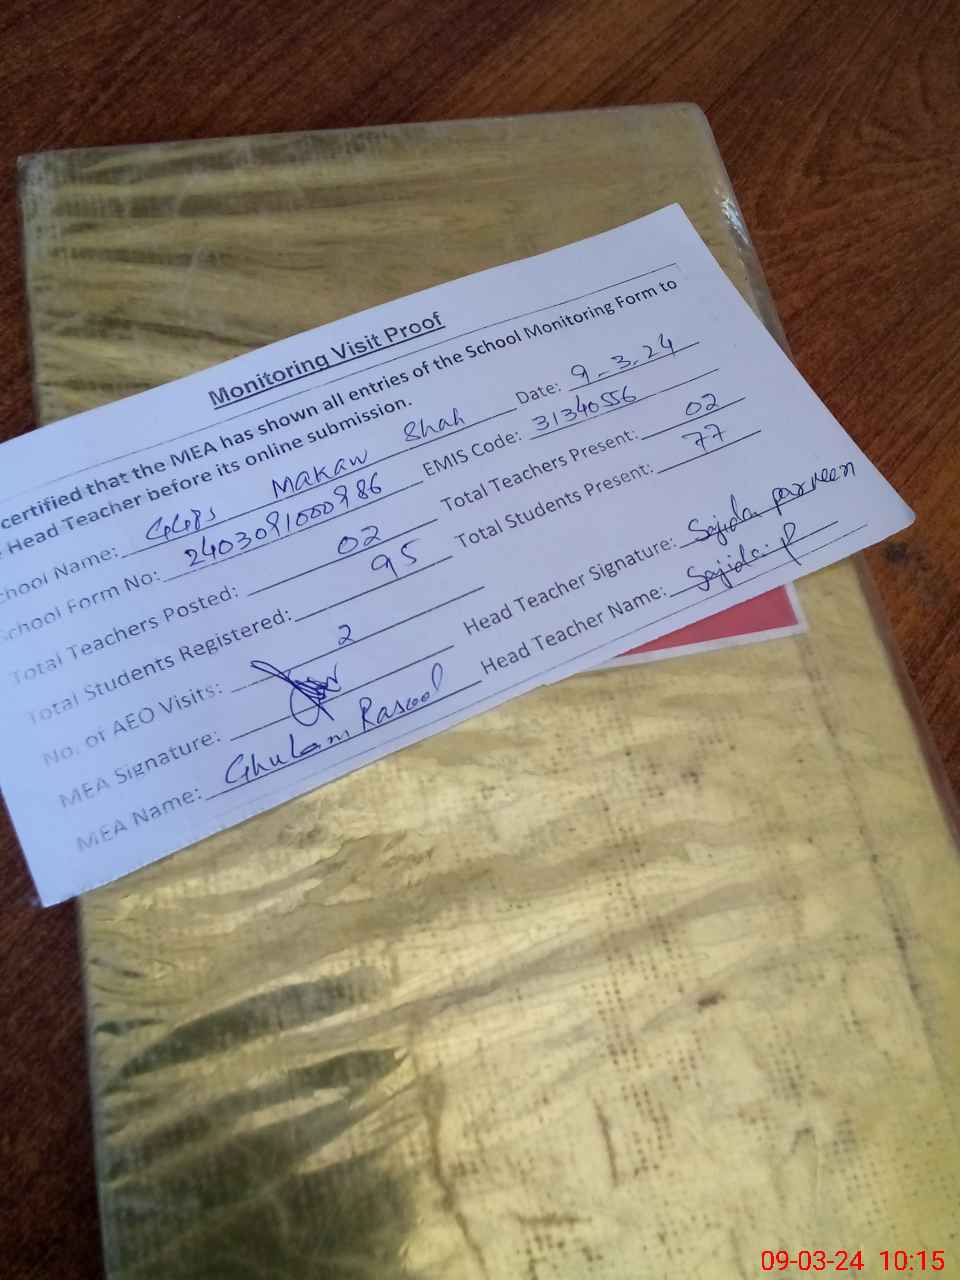 Monitoring Visit Proof
certified that the MEA has shown all entries of the School Monitoring Form to
Head Teacher before its online submission.
chool Name: GGPS Makaw Shah Date: 9-3-24
School Form No: 2403091000986 EMIS Code: 31340556
Total Teachers Posted: 02 Total Teachers Present: 02
Total Students Registered: 95 Total Students Present: 77
No. of AEO Visits: 2
MEA Signature: Head Teacher Signature: Sajida parveen
MEA Name: Ghulam Rasool Head Teacher Name: Sajida. P
09-03-24 10:15